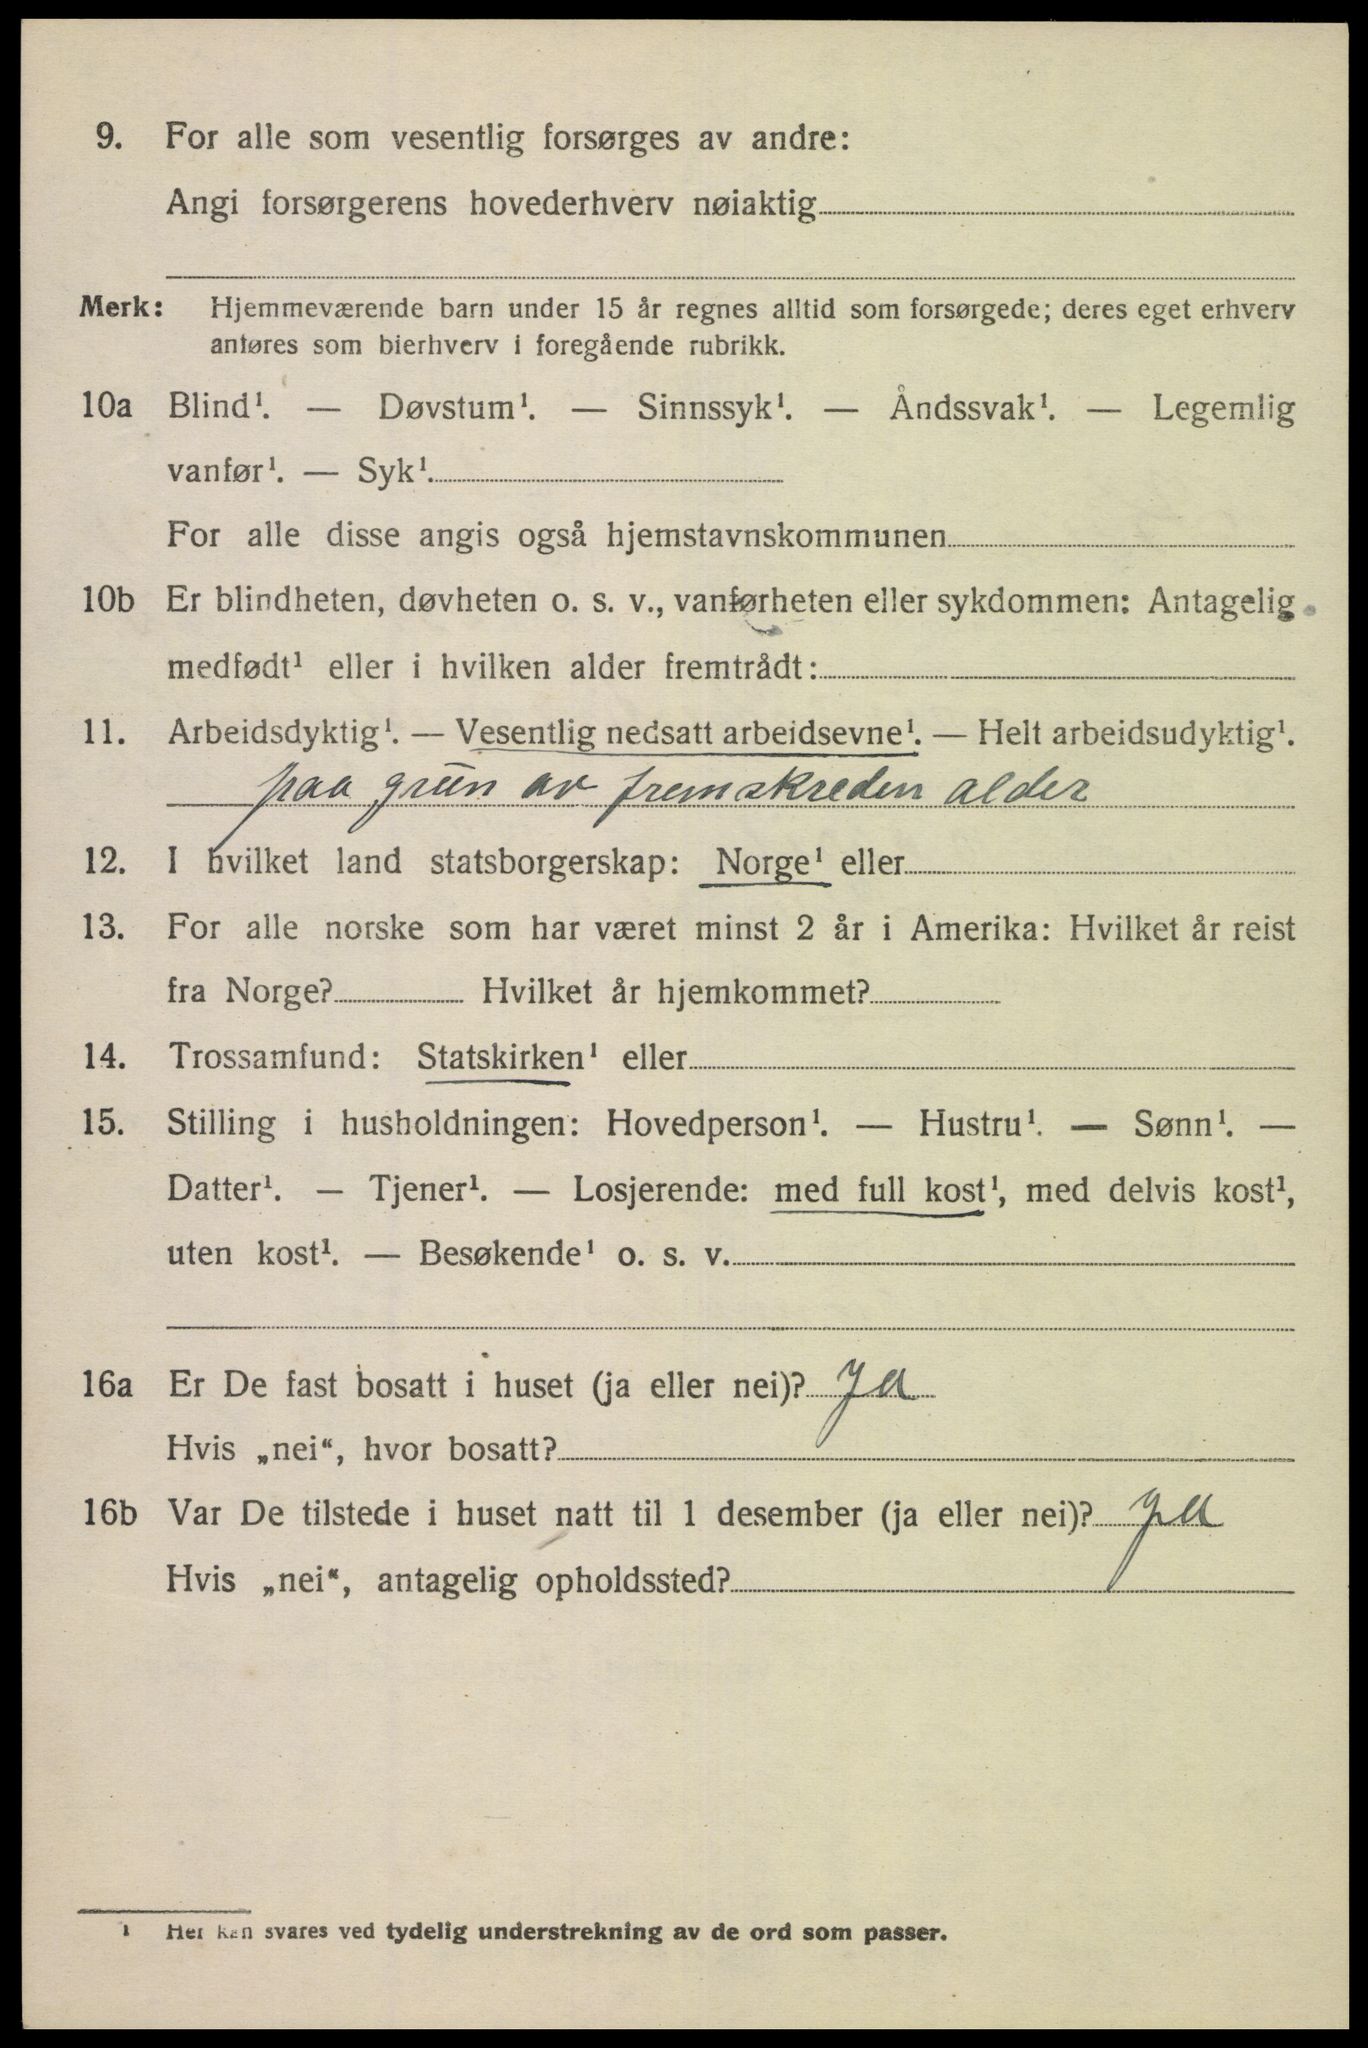 9. For alle som vesentlig forsørges av andre:
Angi forsørgerens hovederhverv nøiaktig
Merk: Hjemmeværende barn under 15 år regnes alltid som forsørgede; deres eget erhverv
anføres som bierhverv i foregående rubrikk.
10a Blind¹. — Døvstum¹. — Sinnssyk¹. — Åndssvak¹. — Legemlig
vanfør¹. — Syk¹.
For alle disse angis også hjemstavnskommunen
10b Er blindheten, døvheten o. s. v., vanførheten eller sykdommen: Antagelig
medfødt¹ eller i hvilken alder fremtrådt:
11. Arbeidsdyktig¹. — Vesentlig nedsatt arbeidsevne¹. — Helt arbeidsudyktig¹.
paa grün av fremskreden alder
12. I hvilket land statsborgerskap: Norge¹ eller
13. For alle norske som har været minst 2 år i Amerika: Hvilket år reist
fra Norge? Hvilket år hjemkommet?
14. Trossamfund: Statskirken¹ eller
15. Stilling i husholdningen: Hovedperson¹. — Hustru¹. — Sønn¹. —
Datter¹. — Tjener¹. — Losjerende: med full kost¹, med delvis kost¹,
uten kost¹. — Besøkende¹ o. s. v.
16a Er De fast bosatt i huset (ja eller nei)? Ja
Hvis „nei“, hvor bosatt?
16b Var De tilstede i huset natt til 1 desember (ja eller nei)? ja
Hvis „nei“, antagelig opholdssted?
1 Her kan svares ved tydelig understrekning av de ord som passer.